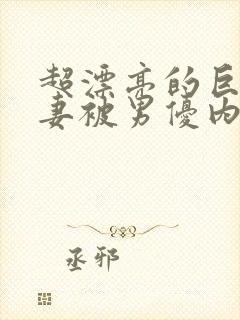 超漂亮的巨
妻被男優内
丞邪